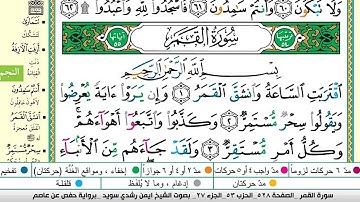 وَلَا تَبْكُونَ ٦٠ وَأَنتُمْ سَٰمِدُونَ ٦١ فَٱسْجُدُوا۟ لِلَّهِ وَٱعْبُدُوا۟ ۩ ٦٢
سُورَةُ القَمَرِ
بِسْمِ ٱللَّهِ ٱلرَّحْمَٰنِ ٱلرَّحِيمِ
ٱقْتَرَبَتِ ٱلسَّاعَةُ وَٱنشَقَّ ٱلْقَمَرُ ١ وَإِن يَرَوْا۟ ءَايَةً يُعْرِضُوا۟
وَيَقُولُوا۟ سِحْرٌ مُّسْتَمِرٌّ ٢ وَكَذَّبُوا۟ وَٱتَّبَعُوٓا۟ أَهْوَآءَهُمْ ۚ
وَكُلُّ أَمْرٍ مُّسْتَقِرٌّ ٣ وَلَقَدْ جَآءَهُم مِّنَ ٱلْأَنۢبَآءِ
النجم
مدّ ٦ حركات لزوماً
مدّ واجب ٤ أو ٥ حركات
مدّ ٢ أو ٤ أو ٦ جوازاً
إخفاء، ومواقع الغُنَّة (حركتان)
تفخيم
مدّ حركتان
إدغام، وما لا يُلفَظ
قلقلة
سورة القمر . الصفحة ٥٢٨ . الحزب ٥٣ . الجزء ٢٧ . بصوت الشيخ ايمن رشدي سويد . برواية حفص عن عاصم